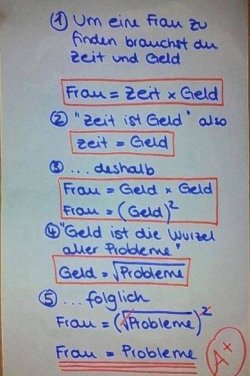 ① Um eine Frau zu
finden brauchst du
Zeit und Geld
Frau = Zeit x Geld
② "Zeit ist Geld" also
Zeit = Geld
③ ...deshalb
Frau = Geld x Geld
Frau = (Geld)²
④ "Geld ist die Wurzel
aller Probleme"
Geld = √Probleme
⑤ ...folglich
Frau = (√Probleme)²
Frau = Probleme
A+